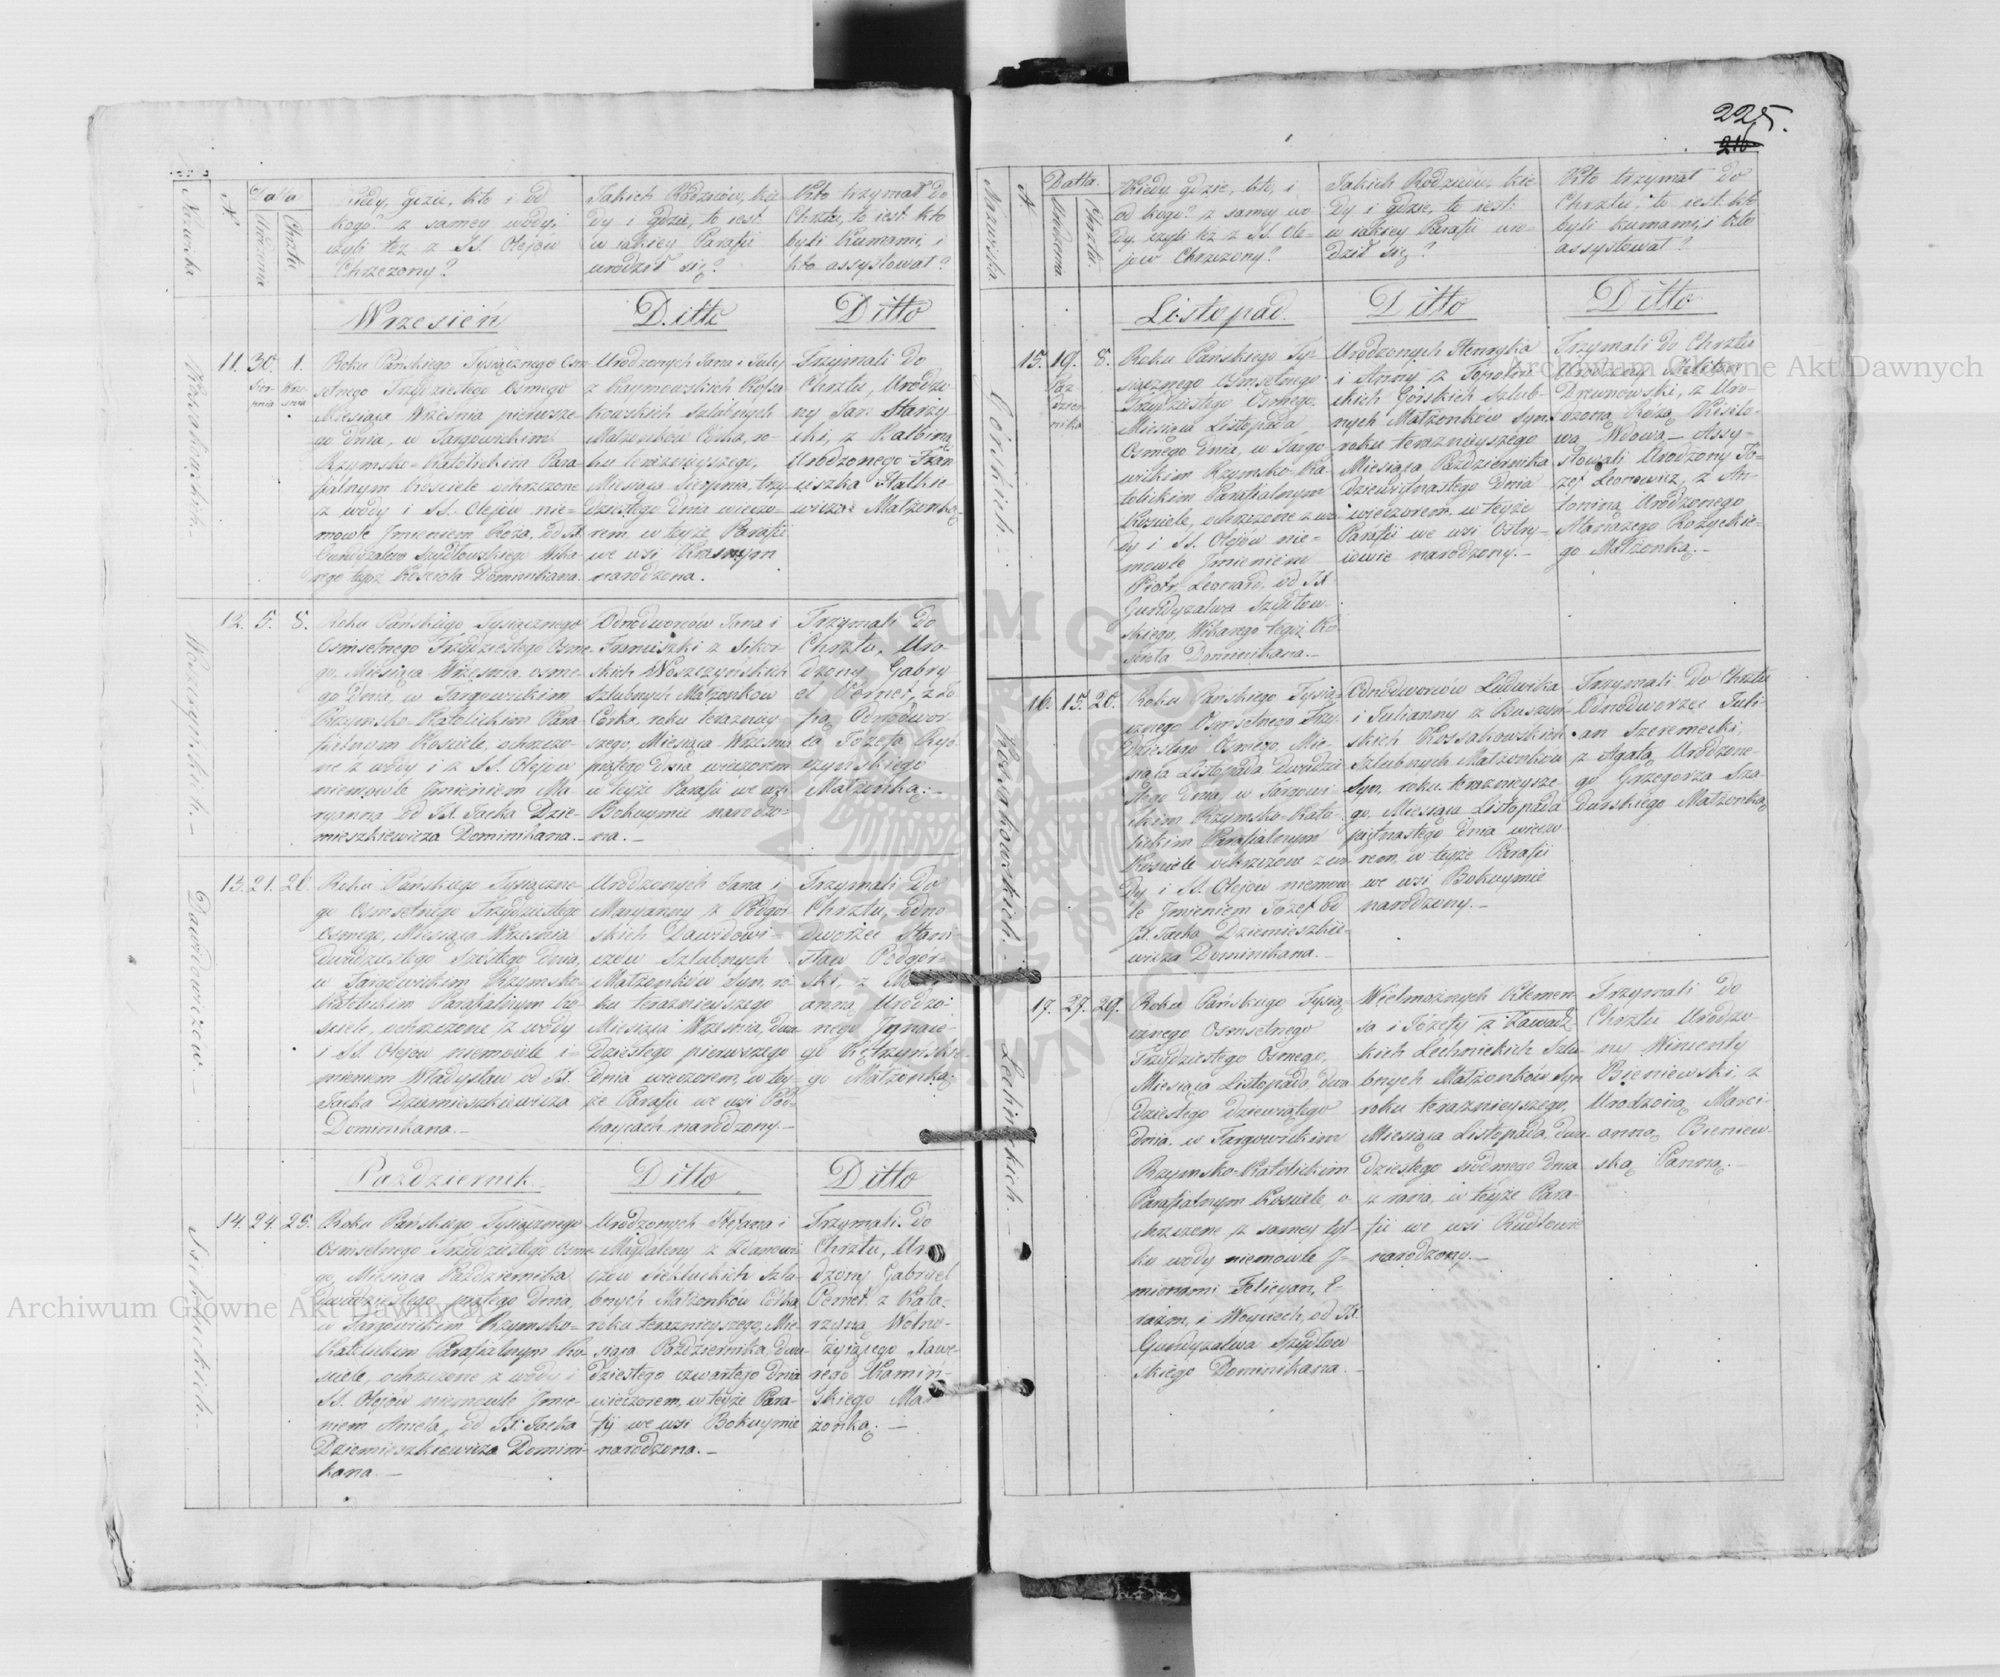 225.
216
Nazwiska.
N.
Data
Urodzenia
Chrztu
Kiedy, gdzie, kto i od
kogo? z samey wody,
czyli też z SS. Olejów
Chrzczony?
Jakich Rodziców, kie-
dy i gdzie, to iest
w jakiey Parafii
urodził się?
Kto trzymał do
Chrztu, to iest kto
byli Kumami, i
kto assystował?
Wrzesień
Ditto
Ditto
Kossakowskich.
11. 30. 1.
Sier-
pnia
Wrze-
śnia
Roku Pańskiego Tysiącznego Osm-
setnego Trzydziestego Osmego
Miesiąca Września pierwsze-
go dnia, w Targowickim
Rzymsko-Katolickim Para-
fialnym kościele ochrzczone
z wody i SS. Olejów nie-
mowle Jmieniem Róża, od JX.
Gundyzalwa Szydłowskiego Wika-
rego tegoż Kościoła Dominikana.
Urodzonych Jana i Julii
z Krymowskich Kossa-
kowskich Szlubnych
Małżonków Córka, ro-
ku teraznieyszego,
Miesiąca Sierpnia, trzy-
dziestego Dnia wieczo-
rem, w teyże Parafii
we wsi Krasnym
narodzona.
Trzymali do
Chrztu, Urodzo-
ny Jan Starzy-
ski, z Balbiną
Urodzonego Fran-
ciszka Stalkie-
wicza Małżonką.
Woszczyńskich.
12. 5. 8.
Roku Pańskiego Tysiącznego
Osmsetnego Trzydziestego Osme-
go, Miesiąca Września osme-
go Dnia, w Targowickim
Rzymsko-Katolickim Para-
fialnym Kościele, ochrzczo-
ne z wody i z SS. Olejow
niemowle Jmieniem Ma-
ryanna od JX. Jacka Dzie-
mieszkiewicza Dominikana.
Odnodworców Jana i
Franciszki z Sikor-
skich Woszczyńskich
Szlubnych Małżonków
Córka, roku teraznièy-
szego, Miesiąca Września
piątego Dnia wieczorem
w teyże Parafii we wsi
Bokuymie narodzo-
na.
Trzymali do
Chrztu, Uro-
dzony Gabry-
el Pernet, z Zo-
fią Odnodwor-
ca Józefa Ryb-
czyńskiego
Małżonką.
Dawidowiczów.
13. 21. 26.
Roku Pańskiego Tysiączne-
go Osmsetnego Trzydziestego
Osmego, Miesiąca Września
dwudziestego szóstego Dnia,
w Targowickim Rzymsko-
Katolickim Parafialnym Ko-
ściele, ochrzczone z wody
i SS. Olejow niemowle i-
mieniem Władysław od JX.
Jacka Dziemieszkiewicza
Dominikana.
Urodzonych Jana i
Maryanny z Podgór-
skich Dawidowi-
czów Szlubnych
Małżonków Syn, ro-
ku teraznieyszego
Miesiąca Września, dwu-
dziestego pierwszego
Dnia wieczorem, w tey-
że Parafii we wsi Pod-
haycach narodzony.
Trzymali do
Chrztu, odno-
dworzec Stani-
sław Podgór-
ski, z
anną Urodzo-
nego Jgnace-
go Kętrzyńskie-
go Małżonką.
Październik
Ditto
Ditto
Siekluckich.
14. 24. 25.
Roku Pańskiego Tysiącznego
Osmsetnego Trzydziestego Osme-
go, Miesiąca Października
dwudziestego piątego Dnia,
w Targowickim Rzymsko-
Katolickim Parafialnym Ko-
ściele, ochrzczone z wody i
SS. Olejów niemowle Jmie-
niem Aniela, od JX. Jacka
Dziemieszkiewicza Domini-
kana.
Urodzonych Stefana i
Magdaleny z Zdanowi-
czów Siekluckich Szlu-
bnych Małżonków Córka,
roku teraznieyszego, Mie-
siąca Października, dwu-
dziestego czwartego Dnia
wieczorem, w teyże Para-
fij we wsi Bokuymie
narodzona.
Trzymali do
Chrztu, Uro-
dzony Gabryel
Pernet z Kata-
rzyną Wolno-
żyiącego Xawe-
rego Kamiń-
skiego Mał-
żonką.
Nazwiska.
N.
Datta.
Urodzenia
Chrztu.
Kiedy, gdzie, kto, i
od kogo? z samey wo-
dy, czyli też z SS. Ole-
jów Chrzczony?
Jakich Rodziców, kie-
dy i gdzie, to iest
w jakiey Parafii uro-
dził się?
Kto trzymał do
Chrztu, to iest kto
byli kumami, i kto
assystował?
Listopad.
Ditto
Ditto
Górskich.
15. 19. 8.
Paź-
dzier-
nika
Roku Pańskiego Ty-
siącznego Osmsetnego
Trzydziestego Osmego,
Miesiąca Listopada,
Osmego Dnia, w Targo-
wickim Rzymsko-Ka-
tolickim Parafialnym
Kościele, ochrzczone z wo-
dy i SS. Olejów nie-
mowle Jmieniem
Piotr Leonard, od JX.
Gundyzalwa Szydłow-
skiego, Wikarego tegoż Ko-
ścioła Dominikana.
Urodzonych Henryka
i Anny z Topolni-
ckich Górskich Szlub-
nych Małżonków Syn,
roku teraznieyszego
Miesiąca Października
dziewiętnastego Dnia
wieczorem, w teyże
Parafii we wsi Ostry-
iowie narodzony.
Trzymali do Chrztu
Urodzony Meliton
Drewnowski, z Uro-
dzoną Różą Kisilo-
wą Wdową. Assy-
stowali Urodzony Jó-
zef Leonowicz, z An-
toniną Urodzonego
Maciażego Rożyckie-
go Małżonką.
Kossakowskich.
16. 15. 20.
Roku Pańskiego Tysią-
cznego Osmsetnego Trzy-
dziestego Osmego, Mie-
siąca Listopada dwudzie-
stego Dnia, w Targowi-
ckim Rzymsko-Kato-
lickim Parafialnym
Kościele ochrzczone z wo-
dy, i SS. Olejów niemow-
le Jmieniem Józef od
JX. Jacka Dziemieszkie-
wicza Dominikana.
Odnodworców Ludwika
i Julianny z Buszyń-
skich Kossakowskich
Szlubnych Małżonków
Syn, roku teraznieysze-
go, Miesiąca Listopada
piętnastego Dnia wieczo-
rem, w teyże Parafii
we wsi Bokuymie
narodzony.
Trzymali do Chrztu
Odnodworzec Juli-
an Szeremecki,
z Agatą Urodzone-
go Grzegorza Sza-
durskiego Małżonką.
Lechnickich.
17. 27. 29.
Roku Pańskiego Tysią-
cznego Osmsetnego
Trzydziestego Osmego,
Miesiąca Listopada, dwu-
dziestego dziewiątego
Dnia w Targowickim
Rzymsko-Katolickim
Parafialnym Kościele, o-
chrzczone z samey tyl-
ko wody niemowle J-
mionami Felicyan, E-
razm, i Woyciech, od JX.
Gundyzalwa Szydłow-
skiego Dominikana.
Wielmożnych Klemen-
sa i Józefy z Zawadz-
kich Lechnickich Szlu-
bnych Małżonków Syn
roku teraznieyszego,
Miesiąca Listopada, dwu-
dziestego siódmego Dnia
z rana, w teyże Para-
fii we wsi Rudłowie
narodzony.
Trzymali do
Chrztu Urodzo-
ny Wincenty
Bieniewski, z
Urodzoną Marci-
anną Bieniew-
ską Panną.
Archiwum Główne Akt Dawnych
Archiwum Główne Akt Dawnych